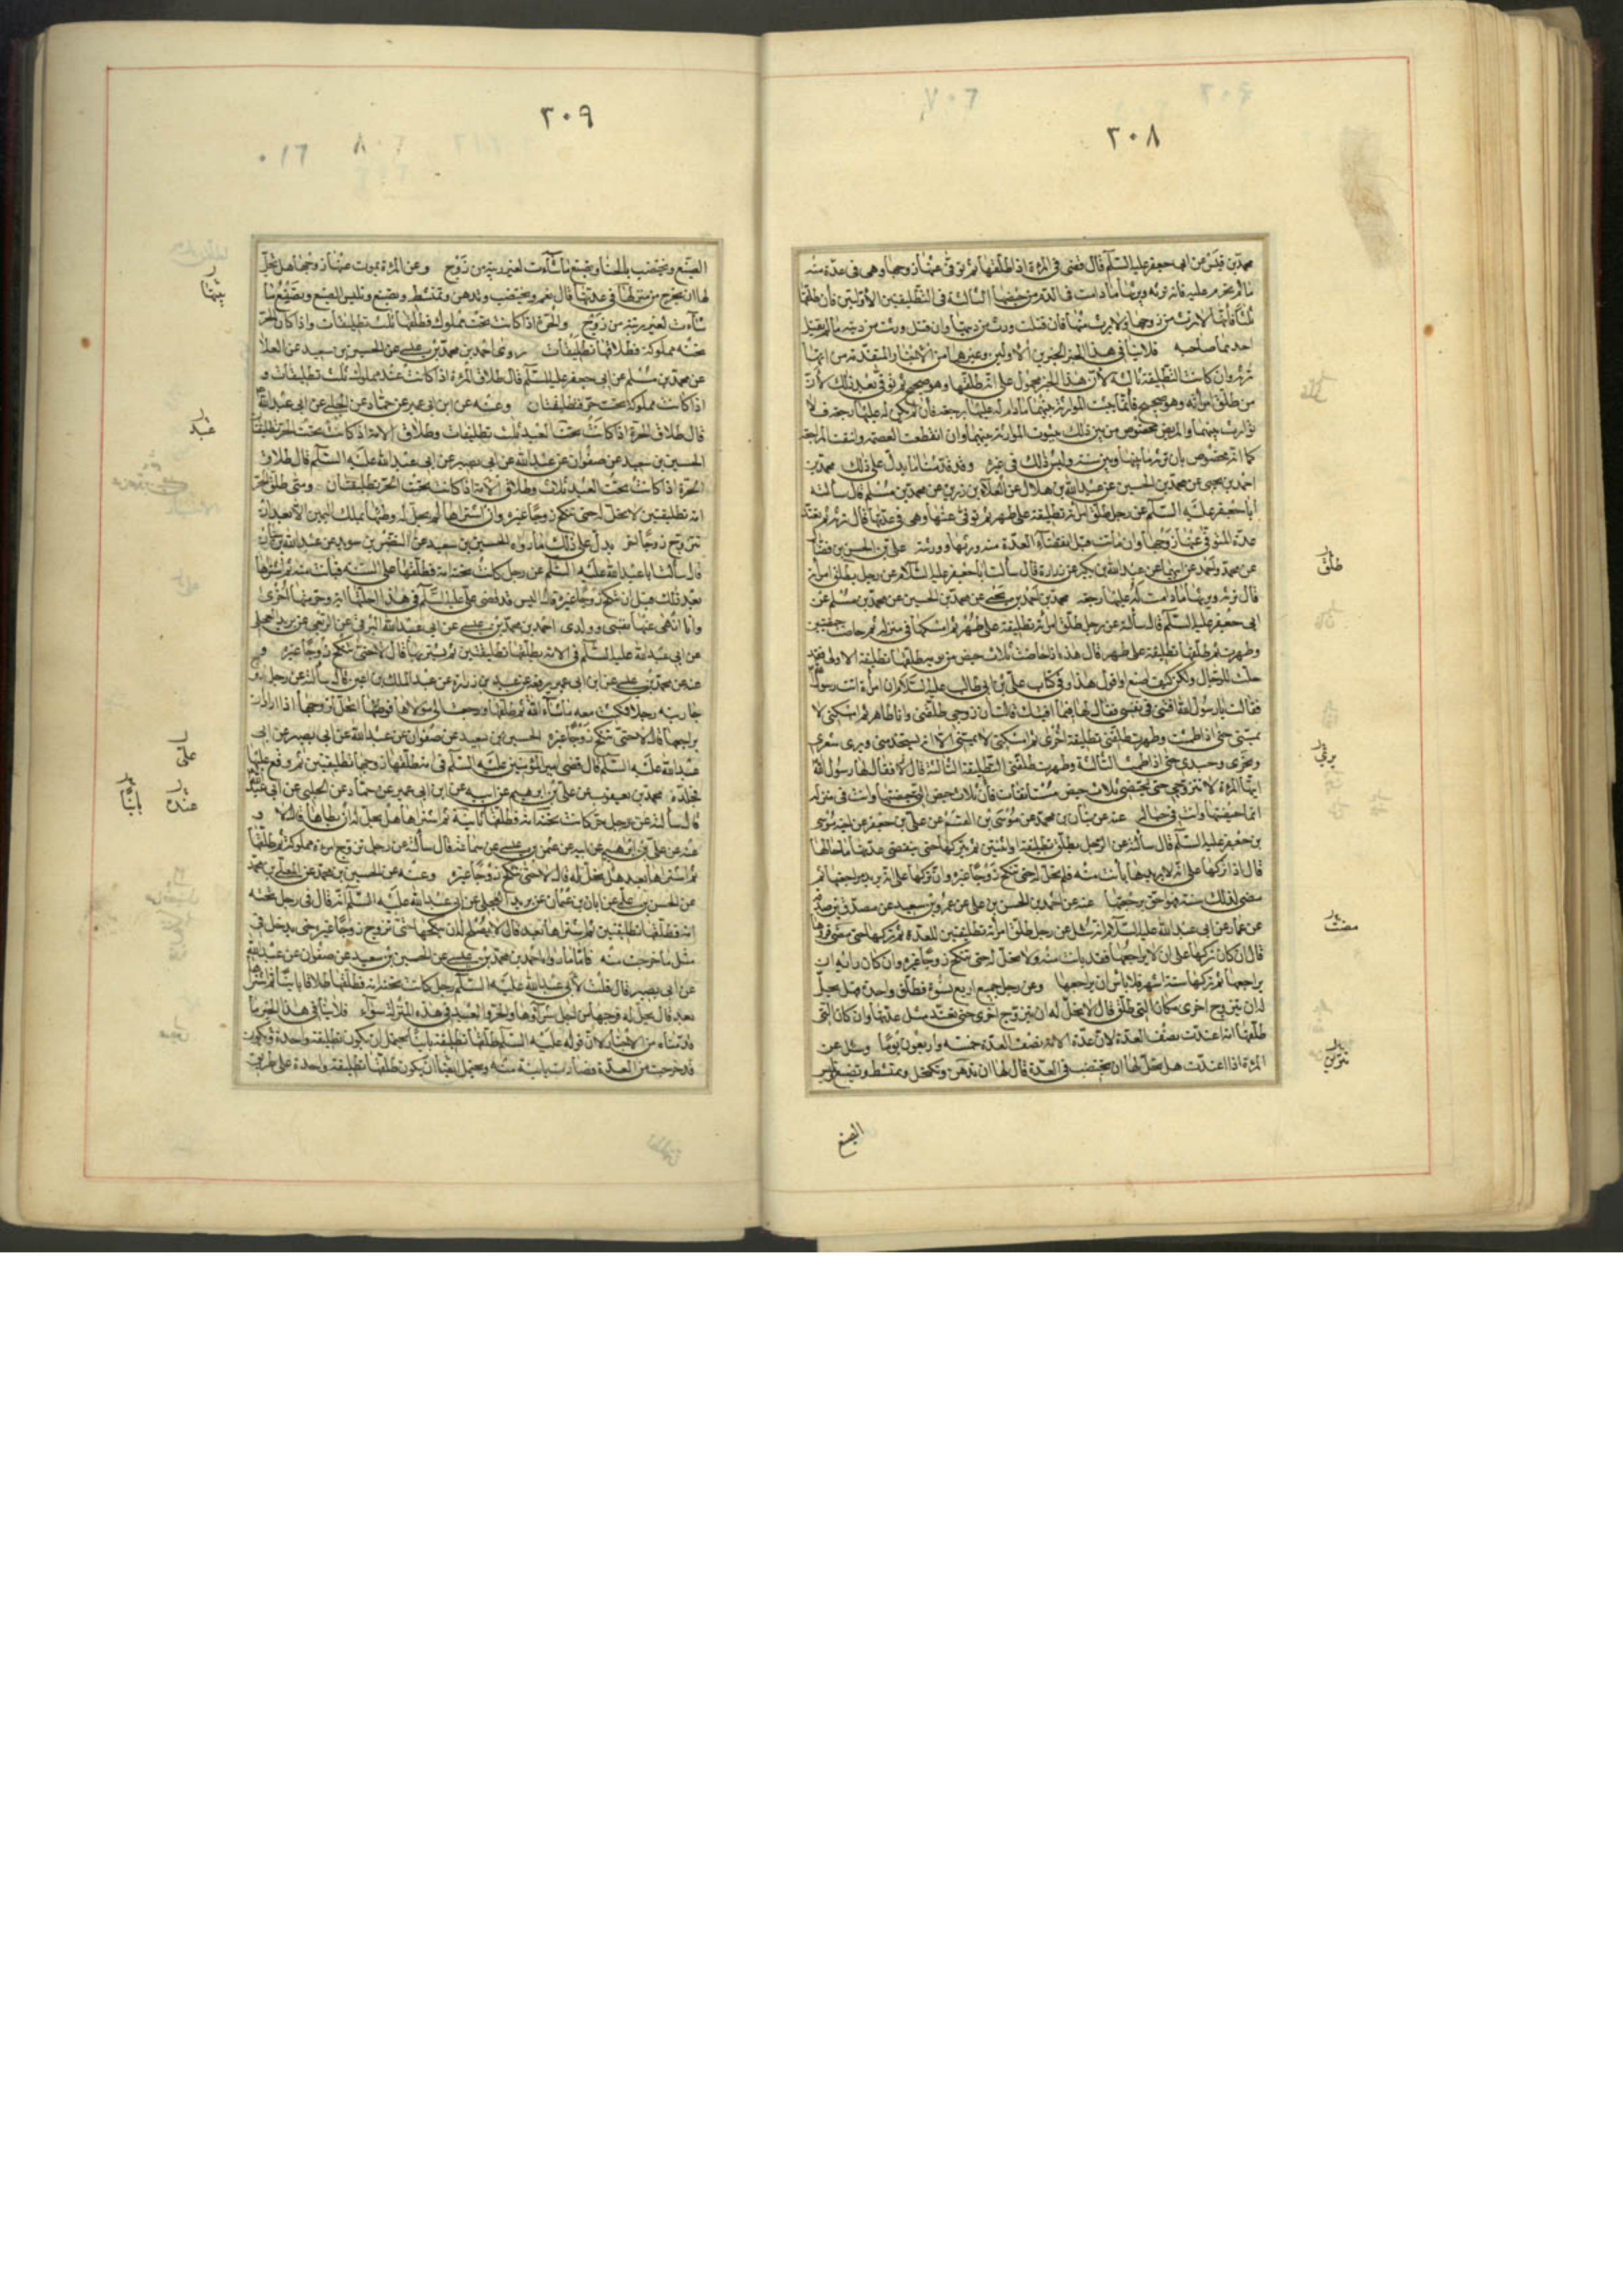 ٢٠٨
محمد بن قيس عن ابى جعفر عليه السلم قال قضى فى المرءة اذا طلقها ثم توفى عنها زوجها وهى فى عدة منه
ما لم تحرم عليه فانها ترثه ويرثها ما دامت فى الدم من حيضها الثالثة فى التطليقتين الاولتين فان طلقها
ثلثا فانها لا ترث من زوجها ولا يرث منها فان قتلت ورث من ديتها وان قتل ورثت من ديته ما لم يقتل
احدهما صاحبه فلا ينافى هذا الخبر الخبرين الاولين وغيرهما من الاخبار المتقدمة من انها
ترثه وان كانت التطليقة ثالثة لان هذا الخبر محمول على انه طلقها وهو صحيح ثم توفى بعد ذلك لان
من طلق امرأته وهو صحيح فانما يثبت الموارثة بينهما ما دام له عليها رجعة فان لم يكن له عليها رجعة فلا
توارث بينهما والمريض مخصوص من بين ذلك بثبوت الموارثة بينهما وان انقطعت العصمة وانتفت المراجعة
كما انه مخصوص بان ترثه ما بينها وبين سنة وليس ذلك فى غيره وقد قدمنا ما يدل على ذلك محمد بن
احمد بن يحيى عن محمد بن الحسين عن عبد الله بن هلال عن العلاء بن رزين عن محمد بن مسلم قال سألت
ابا جعفر عليه السلم عن رجل طلق امرأته تطليقة على طهر ثم توفى عنها وهى فى عدتها قال ترثه ثم تعتد
عدة المتوفى عنها زوجها وان ماتت قبل انقضاء العدة منه ورثها وورثته على بن الحسن بن فضال
عن محمد واحمد عن ابيهما عن عبد الله بن بكير عن زرارة قال سألت ابا جعفر عليه السلام عن رجل يطلق امرأته
قال ترثه ويرثها ما دامت له عليها رجعة محمد بن احمد بن يحيى عن محمد بن الحسين عن محمد بن مسلم عن
ابى جعفر عليه السلم قال سألته عن رجل طلق امرأته تطليقة على طهر ثم امسكها فى منزله ثم حاضت حيضتين
وطهرت ثم طلقها تطليقة على طهر قال هذه اذا حاضت ثلاث حيض من يوم طلقها تطليقة الاولى فقد
حلت للرجال ولكن كيف اصنع او اقول هذا وفى كتاب على بن ابى طالب عليه السلام ان امرأة اتت رسول الله
فقالت يا رسول الله افتنى فى نفسى فقال لها فيما افتيك قالت ان زوجى طلقنى وانا طاهر ثم امسكنى لا
يمسنى حتى اذا طمثت وطهرت طلقنى تطليقة اخرى ثم امسكنى لا يمسنى الا انه يستخدمنى ويرى شعرى
ونحرى وجسدى حتى اذا طمثت الثالثة وطهرت طلقنى التطليقة الثالثة قال فقال لها رسول الله
ايتها المرءة لا تتزوجى حتى تحيضى ثلاث حيض مستانفات فان ثلاث حيض التى حضتيها وانت فى منزله
انما حضتيها وانت فى حباله عنه عن بنان بن محمد عن موسى بن القسم عن على بن جعفر عن اخيه موسى
بن جعفر عليه السلم قال سألته عن الرجل يطلق تطليقة او اثنتين ثم يتركها حتى تنقضى عدتها ما حالها
قال اذا تركها على انه لا يريدها بانت منه فلم تحل له حتى تنكح زوجا غيره وان تركها على انه يريد مراجعتها ثم
مضى لذلك سنة فهو احق برجعتها عنه عن احمد بن الحسن بن على عن عمرو بن سعيد عن مصدق بن صدقة
عن عمار عن ابى عبد الله عليه السلام انه سئل عن رجل طلق امرأته تطليقتين للعدة ثم تركها حتى مضى قروءها
قال ان كان تركها على ان لا يراجعها فقد بانت منه ولا تحل له حتى تنكح زوجا غيره وان كان رايه ان
يراجعها ثم تركها ستة اشهر فلا بأس ان يراجعها وعن رجل جمع اربع نسوة فطلق واحدة هل يحل
له ان يتزوج اخرى مكان التى طلق قال لا يحل له ان يتزوج اخرى حتى تعتد مثل عدتها وان كان التى
طلقها امة اعتدت نصف العدة لان عدة الامة نصف العدة خمسة واربعون يوما وسئل عن
المرءة اذا اعتدت هل يحل لها ان تختضب فى العدة قال لها ان تدهن وتكتحل وتمتشط وتصبغ وتلبس
الصبغ
طلق
يرثى
مضت
تتزوجى
٢٠٩
الصبغ وتختضب بالحناء وتصنع ما شاءت لغير ريبة من زوج وعن المرءة يموت عنها زوجها هل يحل
لها ان تخرج من منزلها فى عدتها قال نعم وتختضب وتدهن وتمتشط وتصبغ وتلبس الصبغ وتصنع ما
شاءت لغير ريبة من زوج والحرة اذا كانت تحت مملوك فطلاقها ثلث تطليقات واذا كان الحر
تحته مملوكة فطلاقها تطليقتان روى احمد بن محمد بن عيسى عن الحسين بن سعيد عن العلا
عن محمد بن مسلم عن ابى جعفر عليه السلم قال طلاق المرءة اذا كانت عند مملوك ثلث تطليقات و
اذا كانت مملوكة تحت حر تطليقتان وعنه عن ابن ابى عمير عن حماد عن الحلبى عن ابى عبد الله
قال طلاق الحرة اذا كانت تحت العبد ثلث تطليقات وطلاق الامة اذا كانت تحت الحر تطليقتان
الحسين بن سعيد عن صفوان عن عبد الله عن ابى بصير عن ابى عبد الله عليه السلم قال طلاق
الحرة اذا كانت تحت العبد ثلاث وطلاق الامة اذا كانت تحت الحر تطليقتان ومتى طلق الحر
امة تطليقتين لا تحل له حتى تنكح زوجا غيره وان اشتراها لم يحل له وطئها بملك اليمين الا بعد ان
تتزوج زوجا اخر يدل على ذلك ما رواه الحسين بن سعيد عن النضر بن سويد عن عبد الله بن سنان
قال سألت ابا عبد الله عليه السلم عن رجل كانت تحته امة فطلقها على السنة فبانت منه ثم اشتراها
بعد ذلك قبل ان تنكح زوجا غيره قال اليس قد قضى على عليه السلم فى هذا احلتها اية وحرمتها اخرى
وانا انهى عنها نفسى وولدى احمد بن محمد بن عيسى عن ابى عبد الله البرقى عن عن بريد العجلى
عن ابى عبد الله عليه السلم فى الامة يطلقها تطليقتين ثم يشتريها قال لا حتى تنكح زوجا غيره و
عنه عن محمد بن عيسى عن ابن ابى عمير عن عبيد بن زرارة عن عبد الملك بن اعين قال سألته عن رجل زوج
جاريته رجلا فمكثت معه ما شاء الله ثم طلقها ورجعت الى مولاها فوطئها اتحل لزوجها اذا اراد ان
يراجعها قال لا حتى تنكح زوجا غيره الحسين بن سعيد عن صفوان عن عبد الله عن ابى بصير عن ابى
عبد الله عليه السلم قال قضى امير المؤمنين عليه السلم فى امة طلقها زوجها تطليقتين ثم وقع عليها
فجلده محمد بن يعقوب عن على بن ابرهيم عن ابيه عن ابن ابى عمير عن حماد عن الحلبى عن ابى عبد الله
قال سألته عن رجل حر كانت تحته امة فطلقها بائنة ثم اشتراها هل يحل له ان يطاها قال لا و
عنه عن على بن ابرهيم عن ابيه عن عثمن بن عيسى عن سماعة قال سألته عن رجل تزوج امرءة مملوكة ثم طلقها
ثم اشتراها بعد هل تحل له قال لا حتى تنكح زوجا غيره وعنه عن الحسين بن محمد عن المعلى بن محمد
عن الحسن بن على عن ابان بن عثمان عن بريد العجلى عن ابى عبد الله عليه السلم انه قال فى رجل تحته
امة فطلقها تطليقتين ثم اشتراها بعد قال لا يصلح له ان ينكحها حتى تزوج زوجا غيره حتى يدخل فى
مثل ما خرجت منه فاما ما رواه احمد بن محمد بن عيسى عن الحسين بن سعيد عن صفوان عن عبد الله
عن ابى بصير قال قلت لابى عبد الله عليه السلم رجل كانت تحته امة فطلقها طلاقا بائنا ثم اشتراها
بعد قال يحل له فرجها من اجل شراؤها والحر والعبد فى هذه المنزلة سواء فلا ينافى هذا الخبر ما
قدمناه من الاخبار لان قوله عليه السلم طلقها تطليقة بائنا يحتمل ان يكون تطليقة واحدة وتكون
قد خرجت من العدة فصارت بائنة منه ويحتمل ايضا ان يكون طلقها تطليقة واحدة على طريق
بيتها
عبد
على
عنده
بائنا